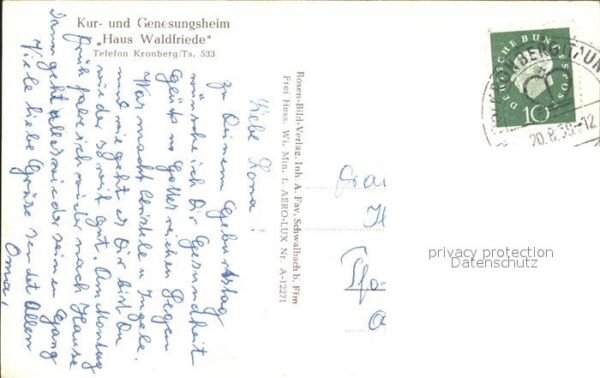 Kur- und Genesungsheim
"Haus Waldfriede"
Telefon Kronberg/Ts. 533
Liebe Rona!
Zu Deinem Geburtstag
wünsche ich Dir Gesundheit
Glück u. Gottes reichen Segen
Was macht Christele u. Ingele.
und wie geht es Dir bist Du
wieder soweit gut. Am Montag
früh fahre ich wieder nach Hause
Dann geht alles wieder seinen Gang
Viele liebe Grüße sendet Allen
Oma,
Rosen-Bild-Verlag, Inh. A. Fav, Schwalbach b. Ffm
Frei Hess. Wi. Min. f. AERO-LUX Nr. A-12271
DEUTSCHE BUNDESPOST
10
KRONBERG (TAUN
20.8.
-12
privacy protection
Datenschutz